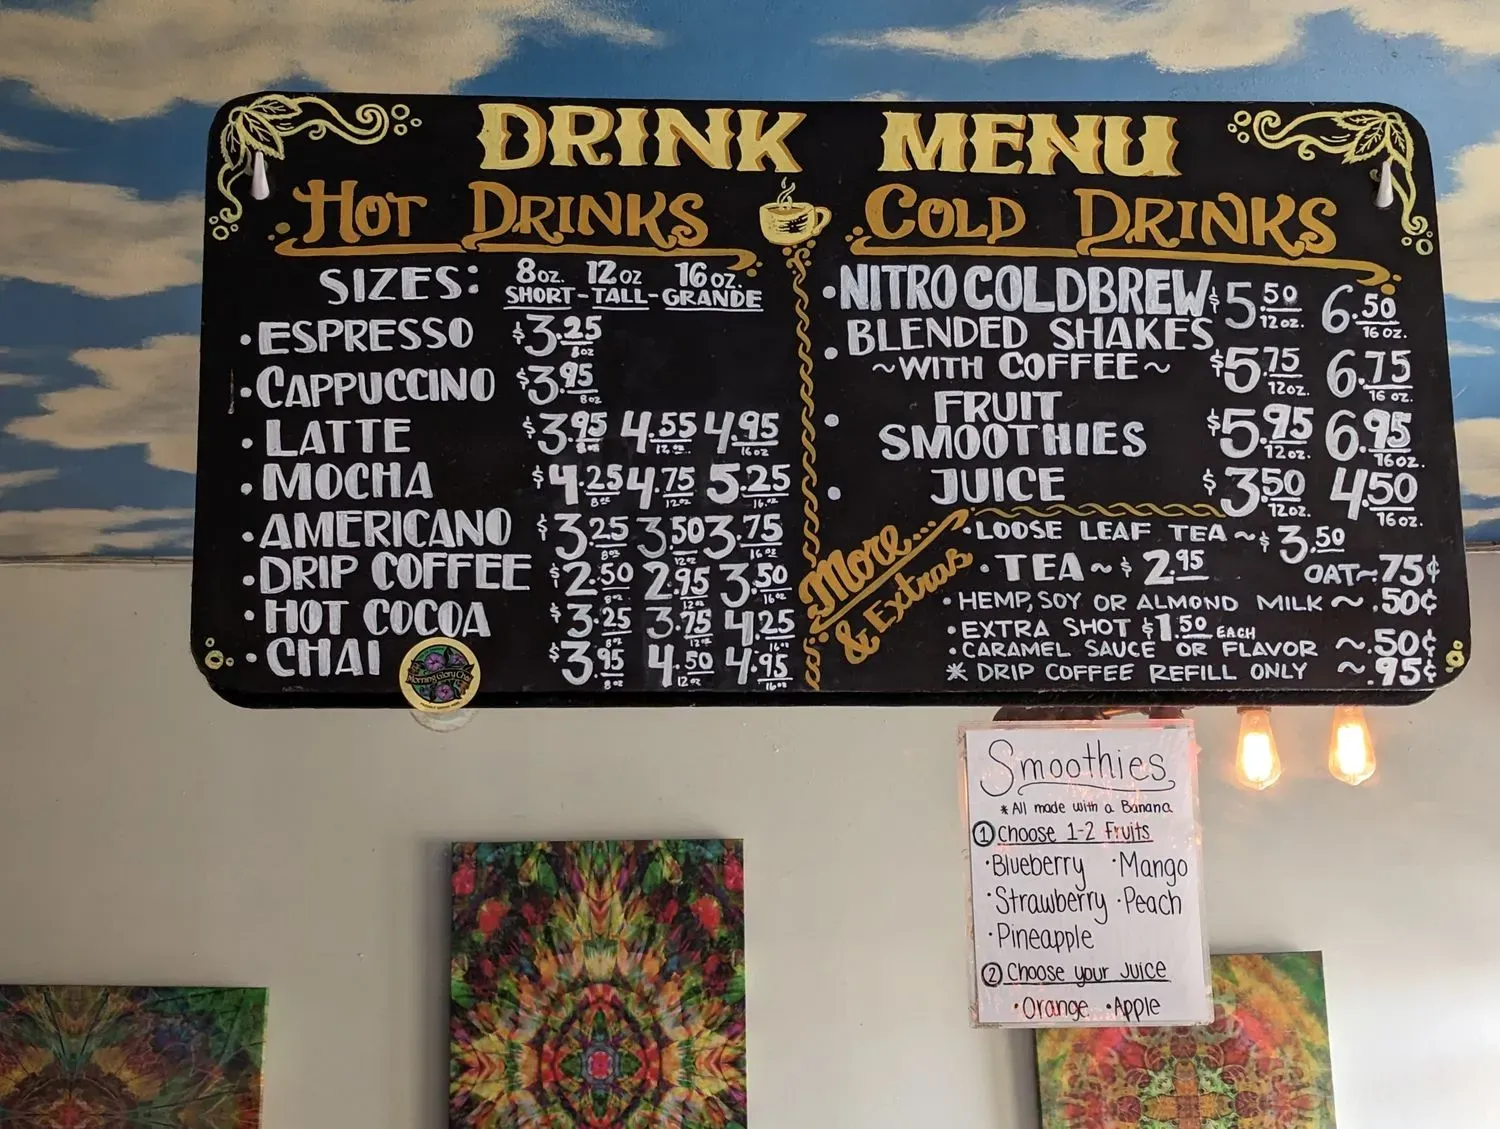 DRINK MENU
HOT DRINKS
SIZES: 8oz. 12oz 16oz.
SHORT-TALL-GRANDE
• ESPRESSO $3.25 8oz
• CAPPUCCINO $3.95 8oz
• LATTE $3.95 8oz 4.55 12oz 4.95 16oz
• MOCHA $4.25 8oz 4.75 12oz 5.25 16oz
• AMERICANO $3.25 8oz 3.50 12oz 3.75 16oz
• DRIP COFFEE $2.50 8oz 2.95 12oz 3.50 16oz
• HOT COCOA $3.25 8oz 3.75 12oz 4.25 16oz
• CHAI $3.95 8oz 4.50 12oz 4.95 16oz
Morning Glory Chai
COLD DRINKS
• NITRO COLDBREW $5.50 12oz. 6.50 16oz.
• BLENDED SHAKES
~WITH COFFEE~ $5.75 12oz. 6.75 16oz.
• FRUIT
SMOOTHIES $5.95 12oz. 6.95 16oz.
• JUICE $3.50 12oz. 4.50 16oz.
More...
& Extras
• LOOSE LEAF TEA ~ $3.50
• TEA ~ $2.95
OAT ~ .75¢
• HEMP, SOY OR ALMOND MILK ~ .50¢
• EXTRA SHOT $1.50 EACH
• CARAMEL SAUCE OR FLAVOR ~ .50¢
* DRIP COFFEE REFILL ONLY ~ .95¢
Smoothies
* All made with a Banana
1 Choose 1-2 Fruits
• Blueberry • Mango
• Strawberry • Peach
• Pineapple
2 Choose your Juice
• Orange • Apple